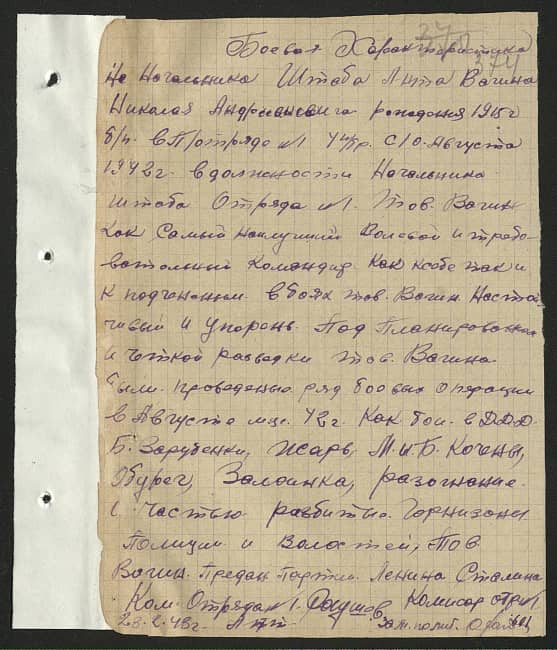 374
Боевая Характеристика
На Начальника Штаба Л-та Вагина
Николая Андриановича рождения 1915г
б/п. в П/отряде №1 с 10. Августа
1942г. в должности Начальника
Штаба Отряда №1. Тов. Вагин
Как Самый наилучший Волевой и требо-
вательный командир. Как к себе так и
к подчененым. в боях тов. Вагин. Настой-
чивый и упорень. Под Планированием
и чоткой разведки тов. Вагина
были. проведенно ряд боевых операции
в Августе м-це. 42г. Как бои. в Д.Д.Д.
Б. Зарубенки, М. и Б. Кочены,
Залоинка, разогнание.
и Частью разбиты. Горнизоны
Полиции и Волостей, Тов.
Вагин. Предан Партии. Ленина Сталина
Ком. Отряда №1. Комисар отр №1
23.2.43г. зам. полит.